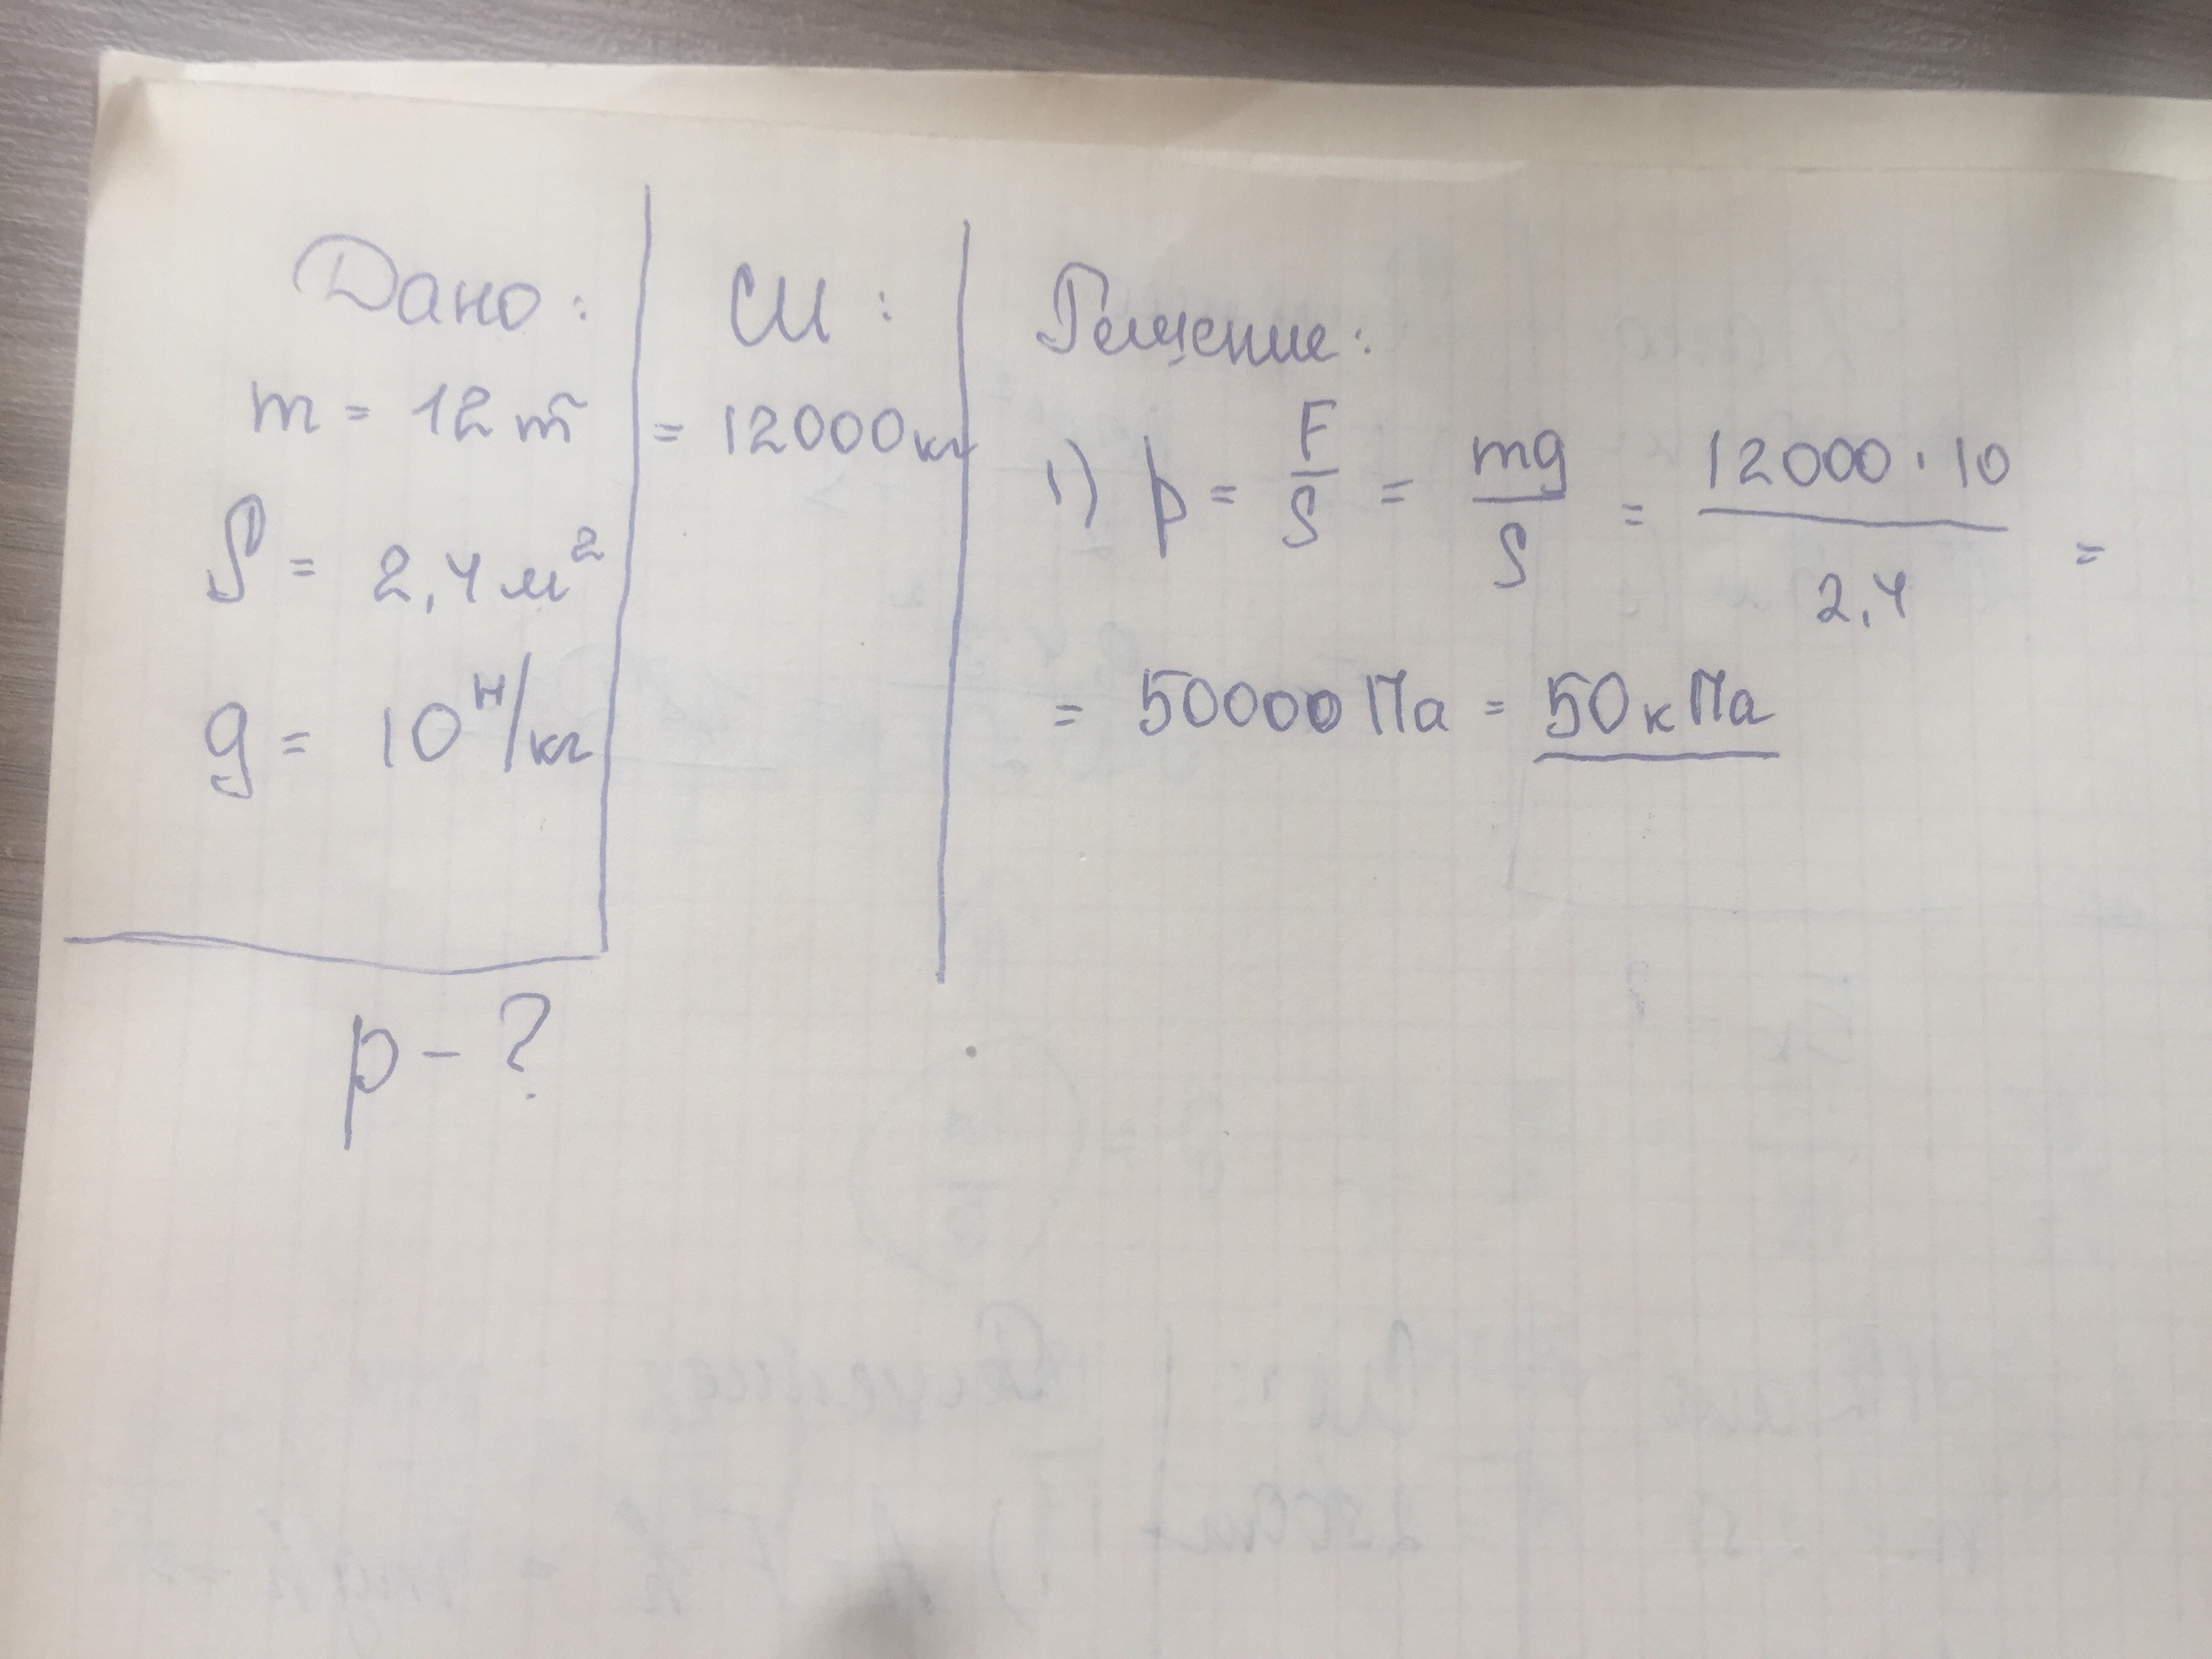 Дано:
m = 12 т
S = 2,4 м²
g = 10 Н/кг
p - ?
СИ:
= 12000 кг
Решение:
1) p = F/S = mg/S = 12000 · 10 / 2,4 =
= 50000 Па = 50 кПа